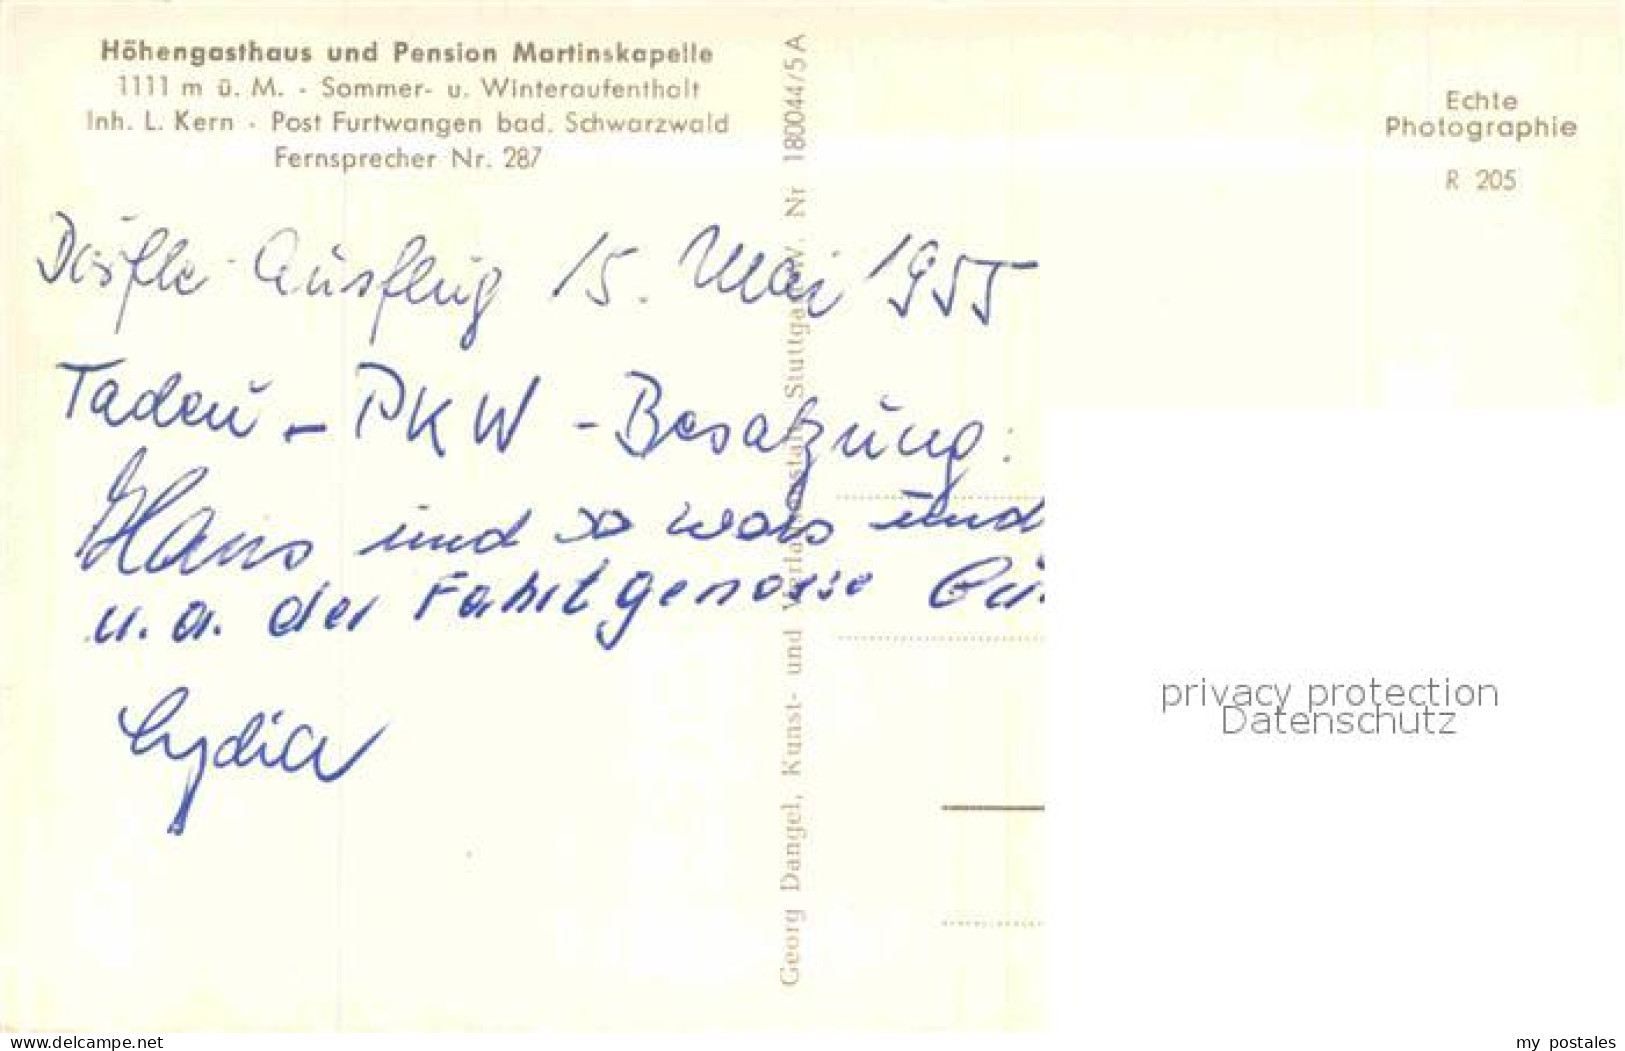 Höhengasthaus und Pension Martinskapelle
1111 m ü. M. - Sommer- u. Winteraufenthalt
Inh. L. Kern - Post Furtwangen bad. Schwarzwald
Fernsprecher Nr. 287
Echte
Photographie
R 205
Ausflug 15. Mai 1955
PKW - Besatzung:
Hans und so was und
u. a. der Fahrtgenosse
Lydia
Georg Dangel, Kunst- und Verlagsanstalt, Stuttgart W. Nr 180044/5 A
privacy protection
Datenschutz
www.delcampe.net
my_postales